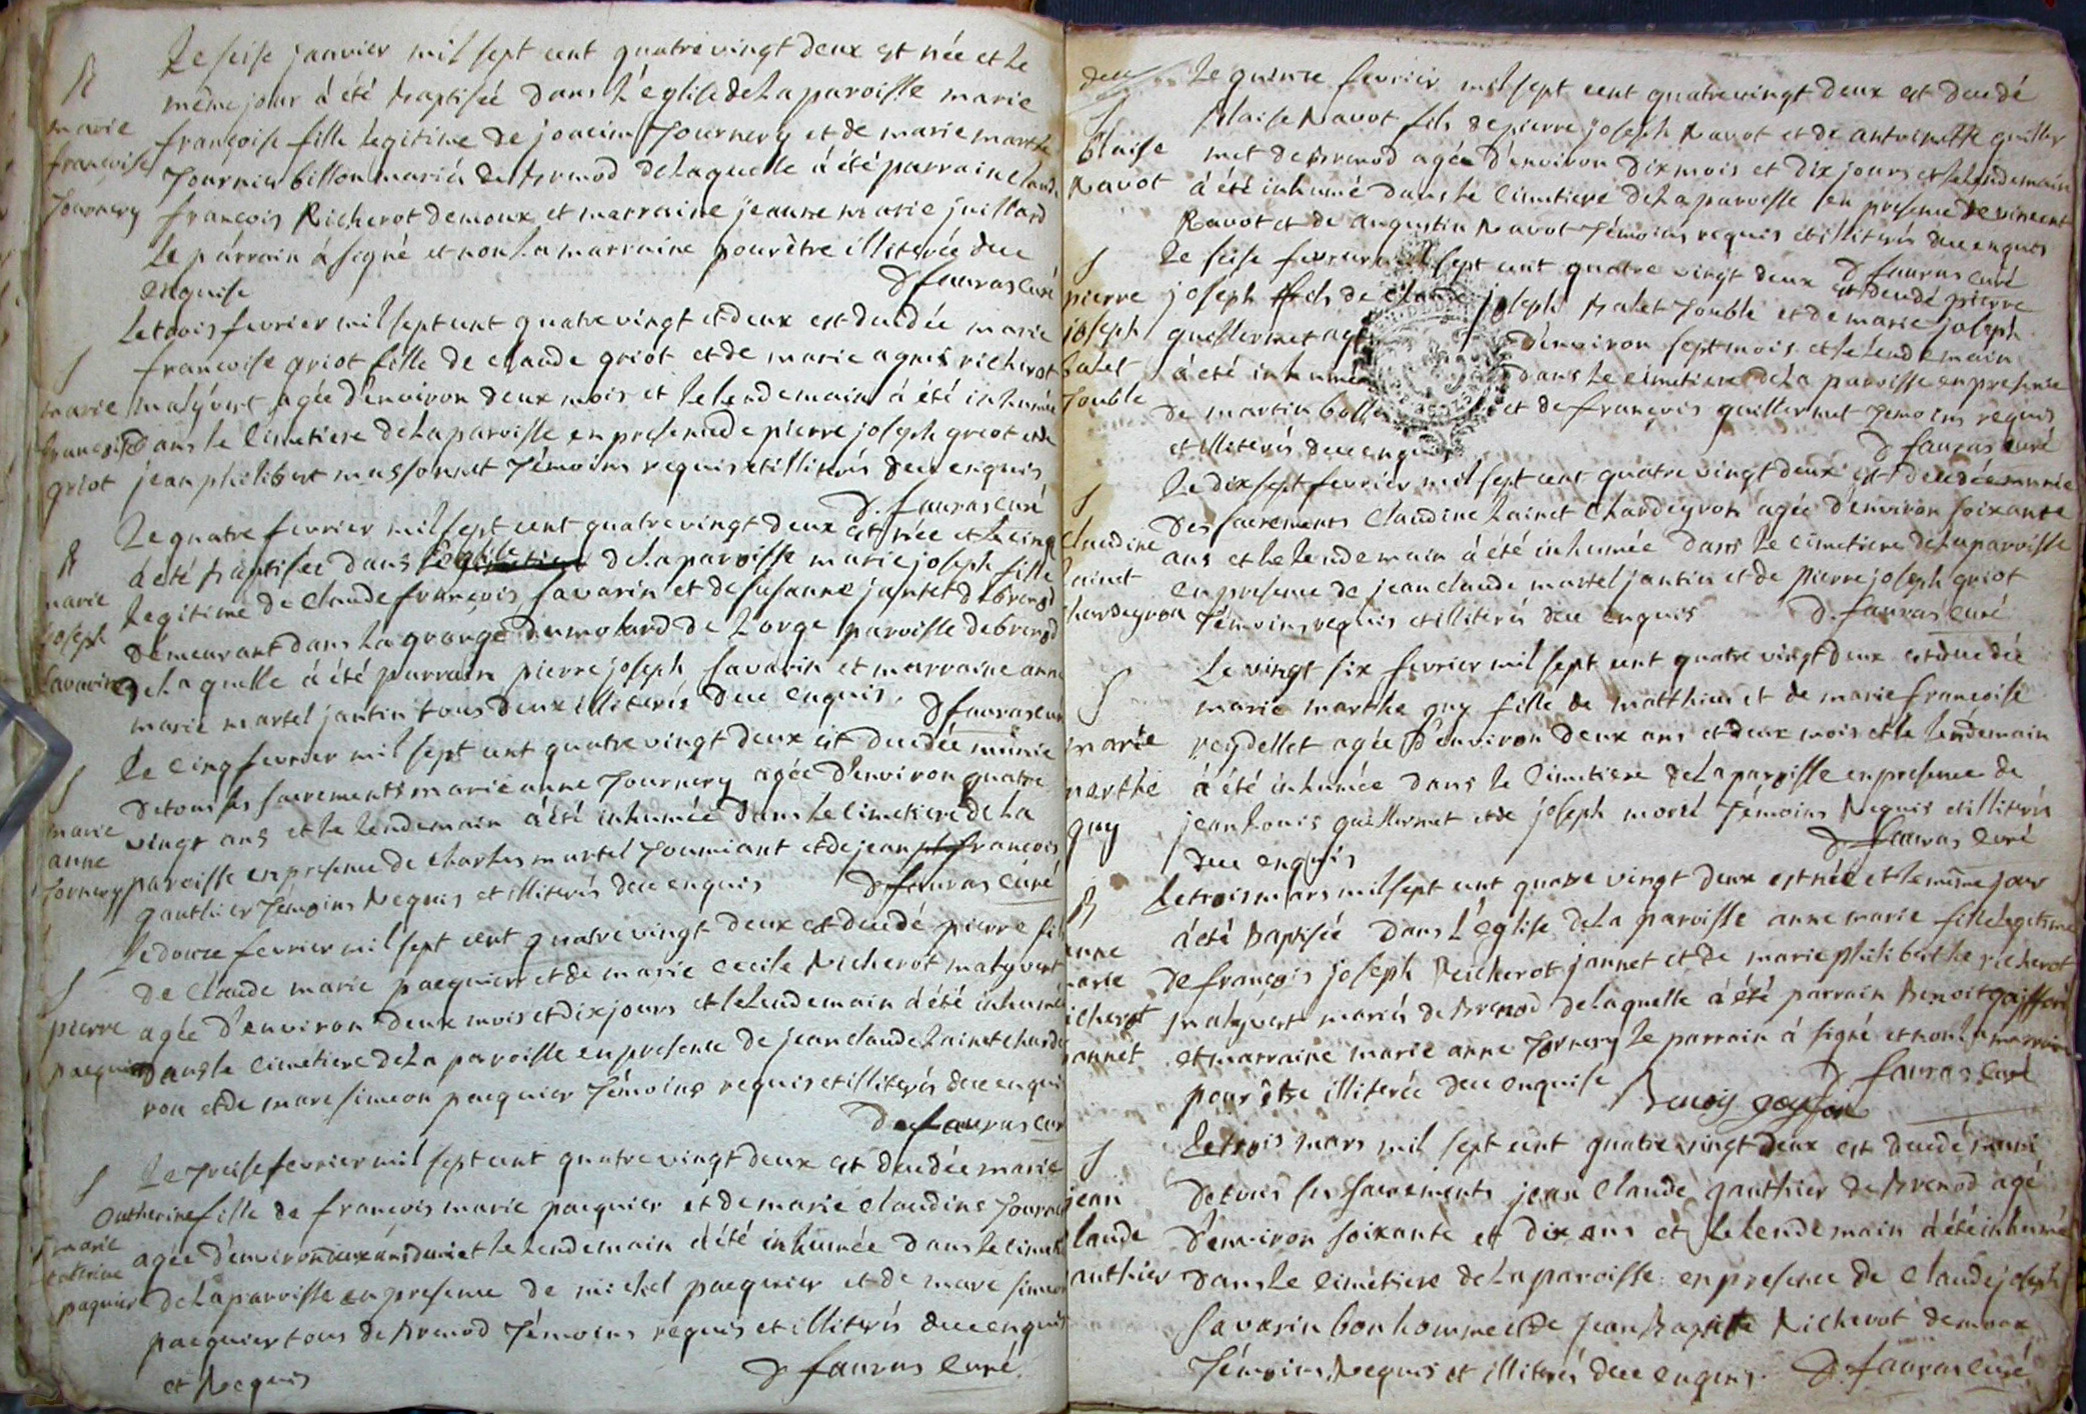 B
marie
françoise
Journery
Le seise janvier mil sept cent quatre vingt deux est née et le
même jour à été baptisée dans l'église de la paroisse marie
françoise fille legitime de joacim Journery et de marie marthe
Tournier billon mariés de brenod de laquelle à été parrain claude
françois Richerot demoux et marraine jeanne marie juillard
le parrain à signé et non la marraine pour être illiterée dece
enquise
D fauras curé
S
marie
françoise
griot
Le trois fevrier mil sept cent quatre vingt et deux est decedée marie
françoise griot fille de claude griot et de marie agnès richerot
matyvert agée d'environ deux mois et le lendemain à été inhumée
dans le cimetiere de la paroisse en presence de pierre joseph griot et de
jean philibert massonnet témoins requis et illiterés dece enquis
D. fauras curé
B
marie
joseph
savarin
Le quatre fevrier mil sept cent quatre vingt deux est née et le cinq
à été baptisée dans l'église de la paroisse marie joseph fille
legitime de claude françois savarin et de susanne jantet de brenod
demeurant dans la grange du molard de l'orge paroisse de brenod
de laquelle à été parrain pierre joseph savarin et marraine anne
marie martel jantin tous deux illiterés dece enquis.
D fauras curé
S
marie
anne
Jornery
Le cinq fevrier mil sept cent quatre vingt deux est decedée munie
de tous les sacrements marie anne Journery agée d'environ quatre
vingt ans et le lendemain à été inhumée dans le cimetiere de la
paroisse en presence de charles martel Toumiant et de jean françois
gauthier témoins requis et illiterés dece enquis
D fauras curé
S
pierre
pacquier
Le douze fevrier mil sept cent quatre vingt deux est decedé pierre fils
de claude marie pacquier et de marie cecile Richerot matyvert
agée d'environ deux mois et dix jours et le lendemain à été inhumé
dans le cimetiere de la paroisse en presence de jean claude Lainet chardey
ron et de marc simeon pacquier témoins requis et illiterés dece enquis
D fauras curé
S
marie
catherine
paquier
Le treise fevrier mil sept cent quatre vingt deux est decedée marie
Catherine fille de françois marie pacquier et de marie claudine
agée d'environ deux ans et le lendemain à été inhumée dans le cimetiere
de la paroisse en presence de michel pacquier et de marc simeon
pacquier tous de brenod témoins requis et illiterés dece enquis
et Requis
D fauras curé.
S
blaise
Ravot
Le quinze fevrier mil sept cent quatre vingt deux est decedé
blaise Ravot fils de pierre joseph Ravot et de antoinette guiller
met de brenod agée d'environ dix mois et dix jours et le lendemain
à été inhumé dans le cimetiere de la paroisse en presence de vincent
Ravot et de augustin Ravot témoins requis et illiterés dece enquis
D fauras curé
S
pierre
joseph
balet
Jouble
Le seise fevrier mil sept cent quatre vingt deux est decedé pierre
joseph fils de claude joseph balet Jouble et de marie joseph
guillermet agé d'environ sept mois et le lendemain
à été inhumé dans le cimetiere de la paroisse en presence
de martin et de françois guillermet témoins requis
et illiterés dece enquis
D fauras curé
S
claudine
Lainet
chardeyron
Le dix sept fevrier mil sept cent quatre vingt deux est decedée munie
des sacrements Claudine Lainet Chardeyron agée d'environ soixante
ans et le lendemain à été inhumée dans le cimetiere de la paroisse
en presence de jean claude martel jantin et de pierre joseph griot
témoins requis et illiterés dece enquis
D. fauras curé
S
marie
marthe
guy
Le vingt six fevrier mil sept cent quatre vingt deux est decedée
marie marthe guy fille de matthieu et de marie françoise
reydellet agée d'environ deux ans et deux mois et le lendemain
à été inhumée dans le cimetiere de la paroisse en presence de
jean Louis guillermet et de joseph morel témoins Requis et illiterés
dece enquis
D. fauras curé
B
anne
marie
richerot
jannet
Le trois mars mil sept cent quatre vingt deux est née et le même jour
à été baptisée dans l'église de la paroisse anne marie fille legitime
de françois joseph Richerot jannet et de marie philiberthe richerot
matyvert mariés de brenod de laquelle à été parrain benoit
et marraine marie anne Jornery le parrain à signé et non la marraine
pour être illiterée dece enquise
D fauras curé
S
jean
claude
gauthier
Le trois mars mil sept cent quatre vingt deux est decedé muni
de tous les sacrements jean claude gauthier de brenod agé
d'environ soixante et dix ans et le lendemain à été inhumé
dans le cimetiere de la paroisse en presence de claude joseph
savarin bonhomme et de jean baptiste Richerot demoux
témoins Requis et illiterés dece enquis.
D. fauras curé